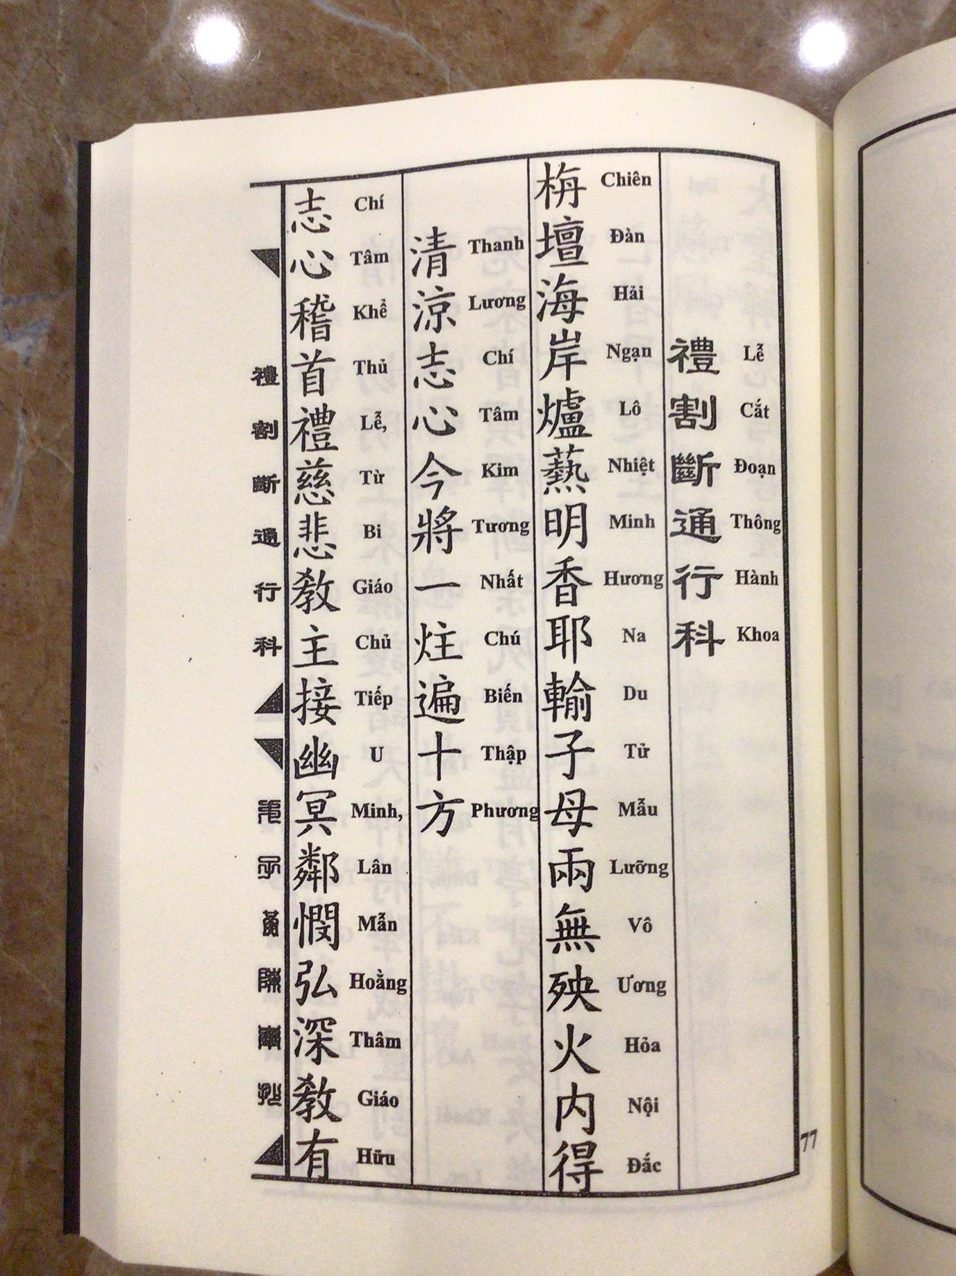 禮割斷通行科
Lễ Cắt Đoạn Thông Hành Khoa
栴壇海岸爐爇明香耶輸子母兩無殃火内得
Chiên Đàn Hải Ngạn Lô Nhiệt Minh Hương Na Du Tử Mẫu Lưỡng Vô Ương Hỏa Nội Đắc
清涼志心今將一炷遍十方
Thanh Lương Chí Tâm Kim Tương Nhất Chú Biến Thập Phương
志心稽首禮慈悲教主接幽冥鄰憫弘深教有
Chí Tâm Khể Thủ Lễ, Từ Bi Giáo Chủ Tiếp U Minh, Lân Mẫn Hoằng Thâm Giáo Hữu
禮割斷通行科
77